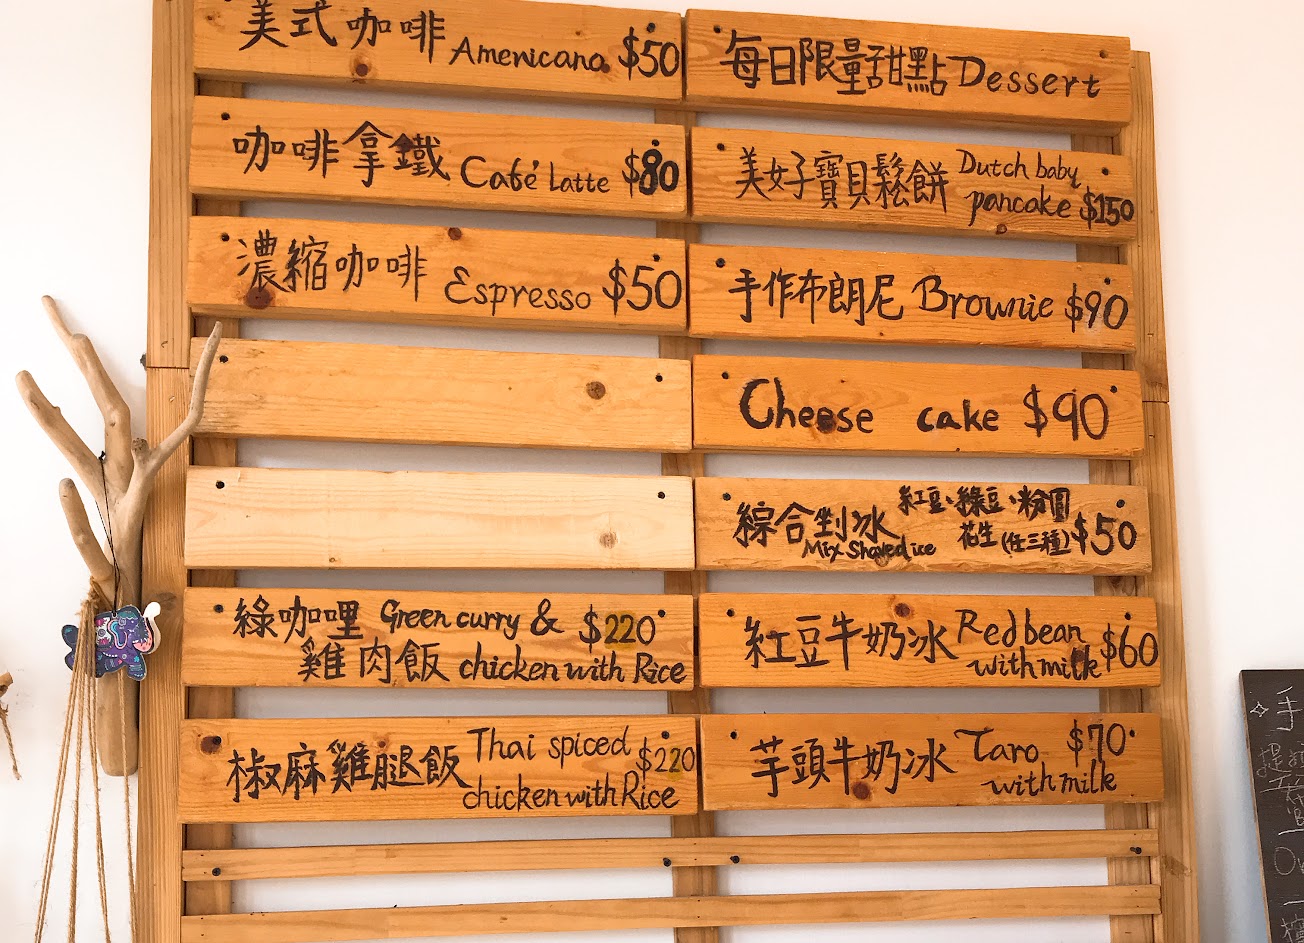 美式咖啡 Americano $50
咖啡拿鐵 Café Latte $80
濃縮咖啡 Espresso $50
綠咖哩 Green curry & $220
雞肉飯 chicken with Rice
椒麻雞腿飯 Thai spiced $220
chicken with Rice
每日限量甜點 Dessert
美好寶貝鬆餅 Dutch baby
pancake $150
手作布朗尼 Brownie $90
Cheese cake $90
綜合剉冰 紅豆、綠豆、粉圓
Mix Shaved ice 花生(任三種) $50
紅豆牛奶冰 Red bean $60
with milk
芋頭牛奶冰 Taro $70
with milk
手